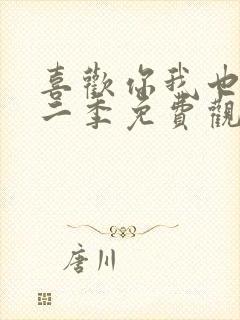 喜歡你我也
二季免費觀
唐川